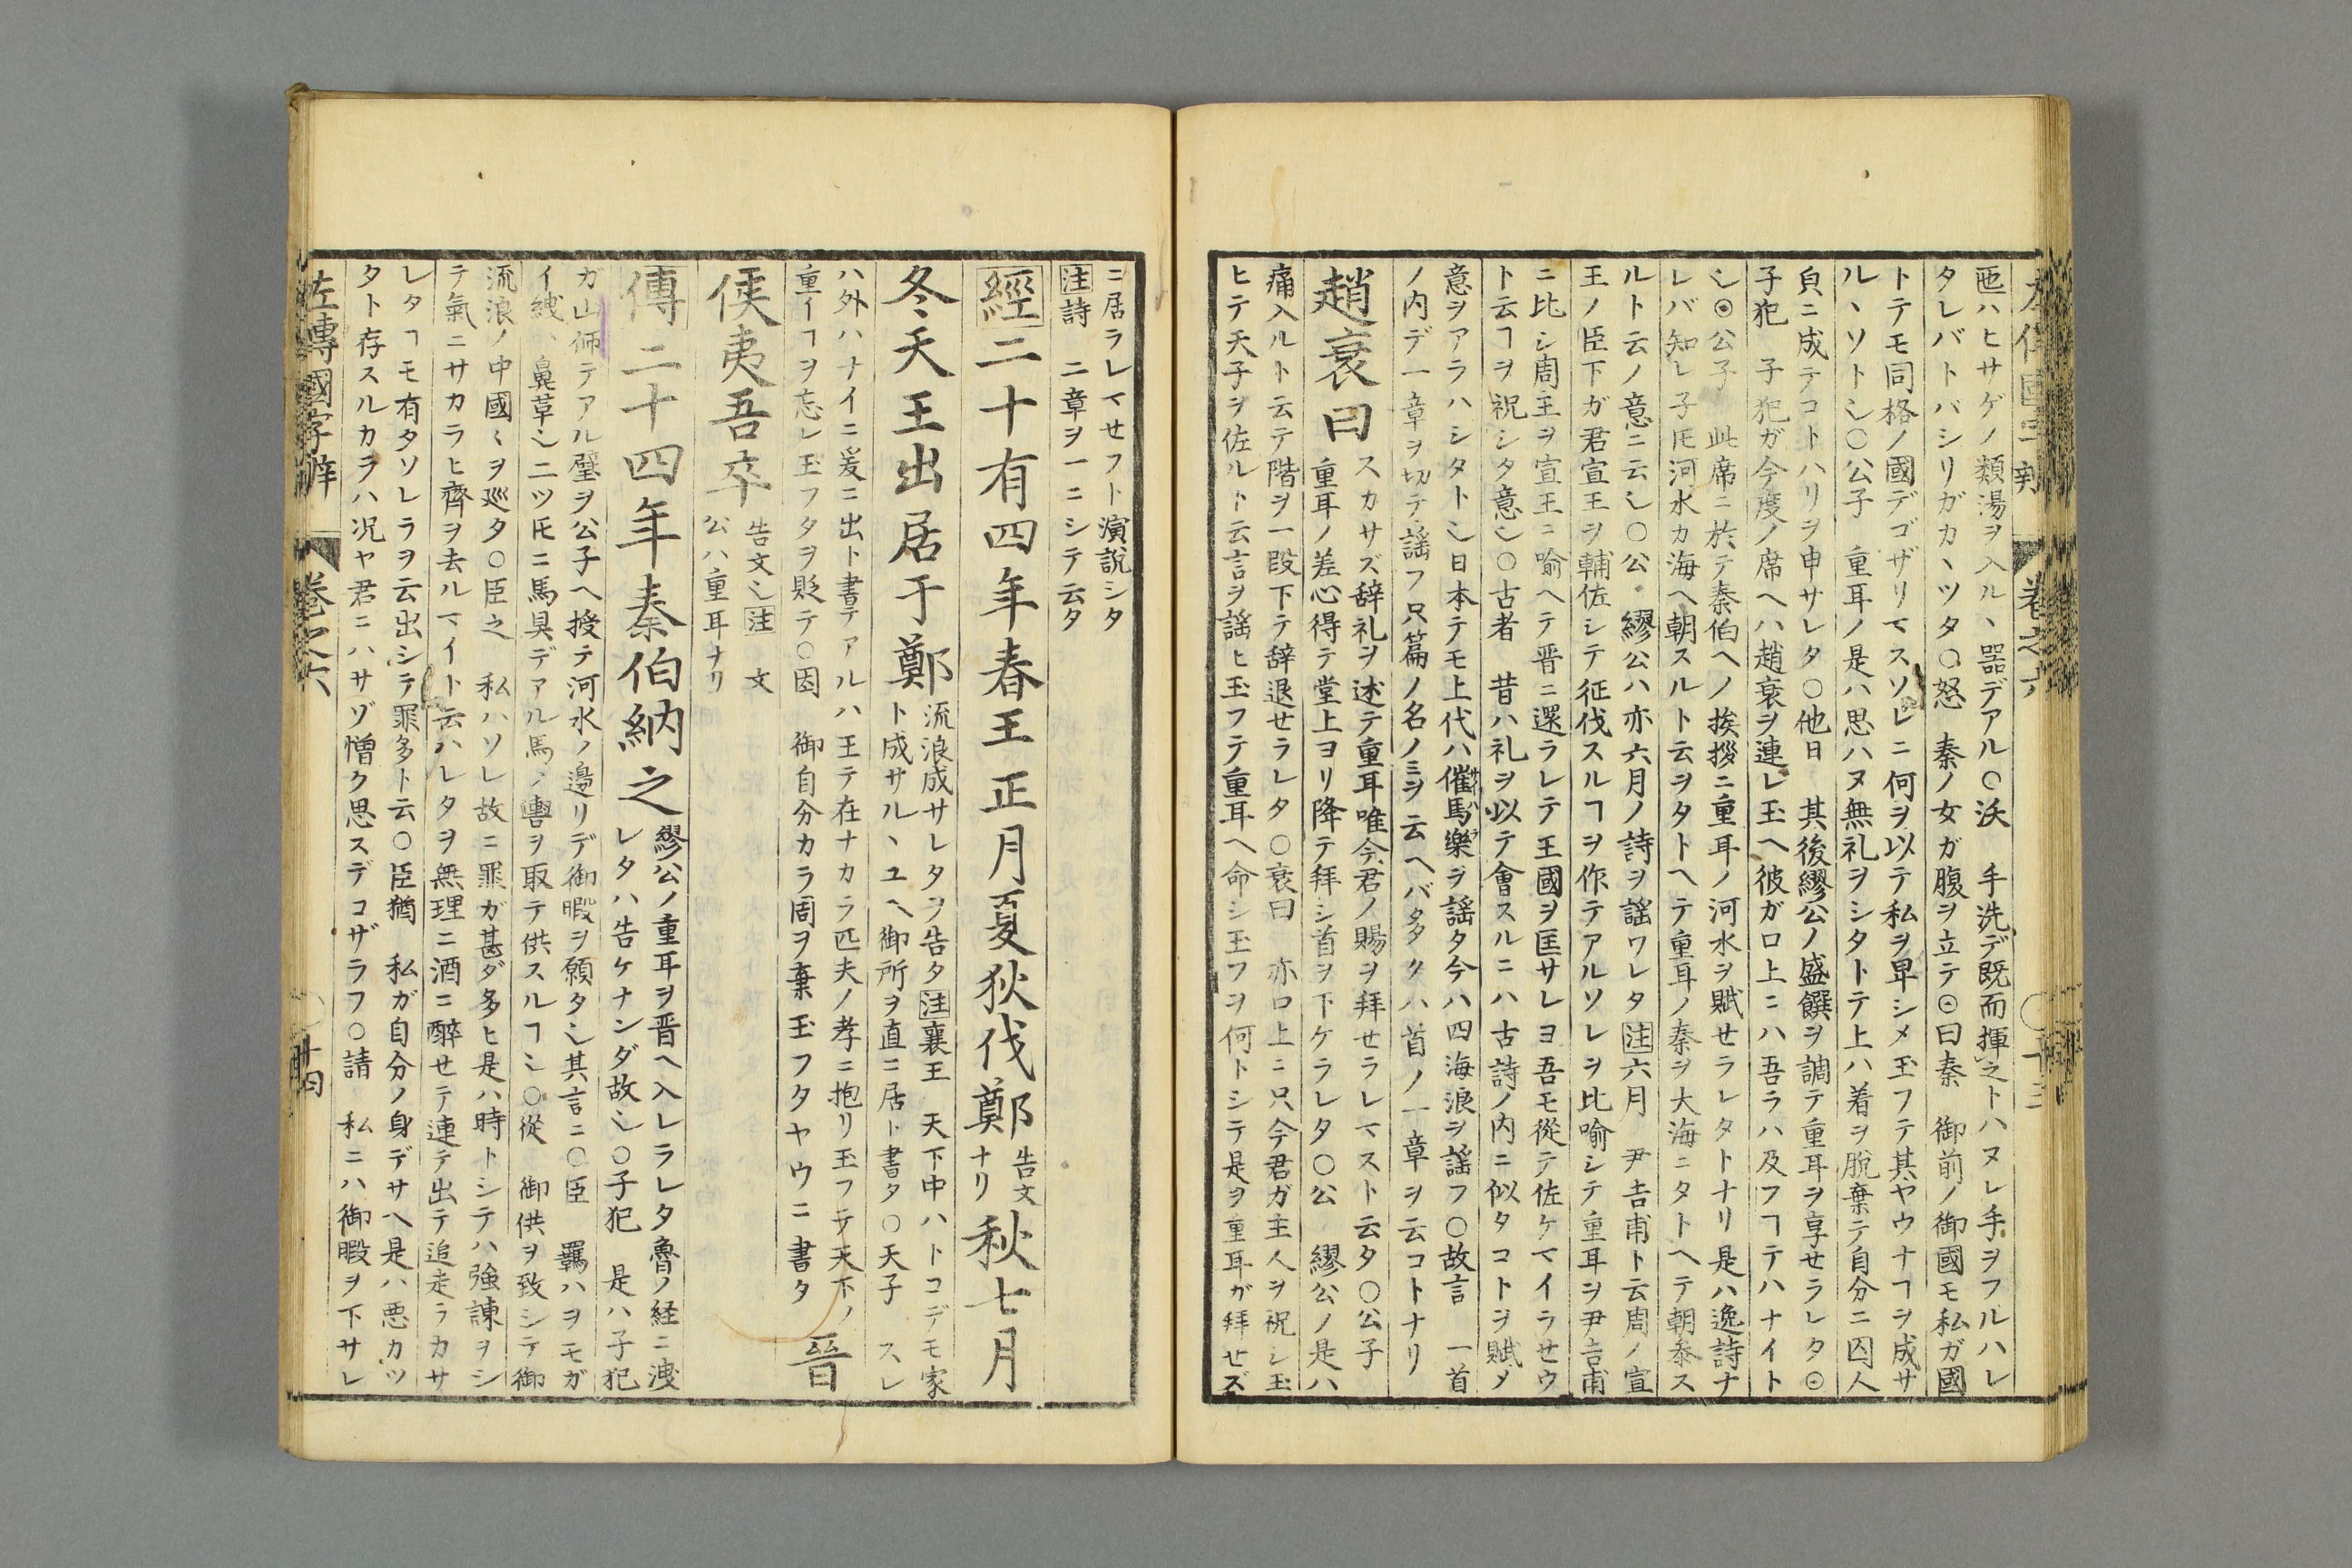 匜ハヒサゲノ類湯ヲ入ルヽ器デアル○沃　手洗デ既而揮之トハヌレ手ヲフルハレ
タレバトバシリガカヽツタ○怒　秦ノ女ガ腹ヲ立テ⊙曰秦　御前ノ御國モ私ガ國
トテモ同格ノ國デゴザリマスソレニ何ヲ以テ私ヲ卑シメ玉フテ其ヤウナヿヲ成サ
ルヽソトシ○公子　重耳ノ是ハ思ハヌ無礼ヲシタトテ上ハ着ヲ脱棄テ自分ニ囚人
貟ニ成テコトハリヲ申サレタ○他日　其後繆公ノ盛饌ヲ調テ重耳ヲ享せラレタ⊙
子犯　子犯ガ今度ノ席ヘハ趙衰ヲ連レ玉ヘ彼ガ口上ニハ吾ラハ及フヿテハナイト
シ⊙公子　此席ニ於テ秦伯ヘノ挨拶ニ重耳ノ河水ヲ賦せラレタトナリ是ハ逸詩ナ
レバ知レ子𪜈河水カ海ヘ朝スルト云ヲタトヘテ重耳ノ秦ヲ大海ニタトヘテ朝参ス
ルト云ノ意ニ云シ○公　繆公ハ亦六月ノ詩ヲ謡ワレタ注六月　尹吉甫ト云周ノ宣
王ノ臣下ガ君宣王ヲ輔佐シテ征伐スルヿヲ作テアルソレヲ比喻シテ重耳ヲ尹吉甫
ニ比シ周王ヲ宣王ニ喻ヘテ晋ニ還ラレテ王國ヲ匡サレヨ吾モ從テ佐ケマイラせウ
ト云ヿヲ祝シタ意シ○古者　昔ハ礼ヲ以テ會スルニハ古詩ノ内ニ似タコトヲ賦メ
意ヲアラハシタトシ日本テモ上代ハ催馬樂ヲ謡タ今ハ四海浪ヲ謡フ○故言　一首
ノ内デ一章ヲ切テ謡フ只篇ノ名ノミヲ云ヘバタクハ首ノ一章ヲ云コトナリ
趙衰曰
スカサズ辞礼ヲ述テ重耳唯今君ノ賜ヲ拜せラレマスト云タ○公子
重耳ノ差心得テ堂上ヨリ降テ拜シ首ヲ下ケラレタ○公　繆公ノ是ハ
痛入ルト云テ階ヲ一段下テ辞退せラレタ○衰曰　亦口上ニ只今君ガ主人ヲ祝シ玉
ヒテ天子ヲ佐ルト云言ヲ謡ヒ玉フテ重耳ヘ命シ玉フヲ何トシテ是ヲ重耳ガ拜せズ
ニ居ラレマせフト演説シタ
注詩　二章ヲ一ニシテ云タ
經二十有四年春王正月夏狄伐鄭
告文
ナリ
秋七月
冬天王出居于鄭
流浪成サレタヲ告タ注襄王　天下中ハトコデモ家
ト成サルヽユヘ御所ヲ直ニ居ト書タ○天子　スレ
ハ外ハナイニ爰ニ出ト書テアルハ王テ在ナカラ匹夫ノ孝ニ抱リ玉フテ天下ノ
重イヿヲ忘レ玉フタヲ貶テ○因　御自分カラ周ヲ棄玉フタヤウニ書タ
晉
侯夷吾卒
告文シ注　文
公ハ重耳ナリ
傳二十四年秦伯納之
繆公ノ重耳ヲ晋ヘ入レラレタ魯ノ経ニ洩
レタハ告ケナンダ故シ○子犯　是ハ子犯
ガ山師テアル璧ヲ公子ヘ授テ河水ノ邉リデ御暇ヲ願タシ其言ニ○臣　羈ハヲモガ
イ紲ハ鼻草シ二ツ𪜈ニ馬具デアル馬ノ轡ヲ取テ供スルヿシ○從　御供ヲ致シテ御
流浪ノ中國〱ヲ巡タ○臣之　私ハソレ故ニ罪ガ甚ダ多ヒ是ハ時トシテハ強諫ヲシ
テ氣ニサカラヒ齊ヲ去ルマイト云ハレタヲ無理ニ酒ニ醉せテ連テ出テ追走ラカサ
レタヿモ有タソレラヲ云出シテ罪多ト云○臣猶　私ガ自分ノ身デサヘ是ハ悪カツ
タト存スルカラハ况ヤ君ニハサゾ憎ク思スデコザラフ○請　私ニハ御暇ヲ下サレ
佐傳國字辨　巻之六　十四